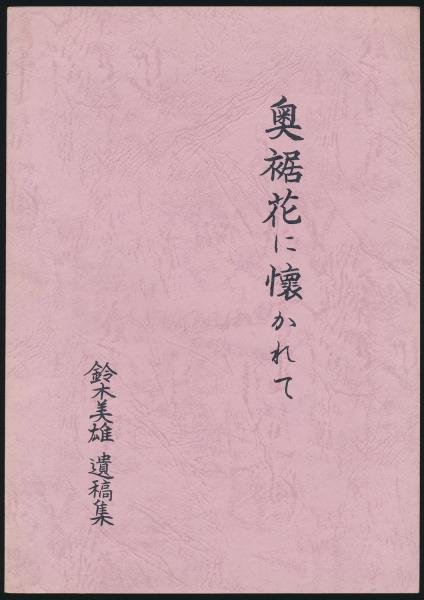 奥裾花に懐かれて
鈴木美雄 遺稿集